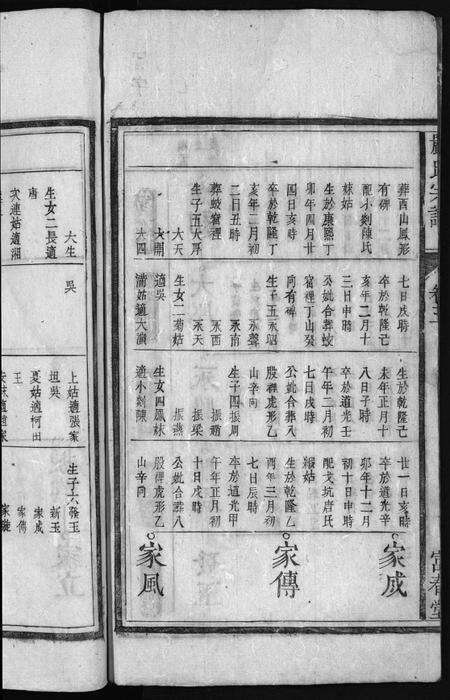 嚴氏宗譜
卷十
富春堂
葬西山鳳形
有碑
配小剡陳氏
妹姑
生於康熙丁
卯年四月廿
四日亥時
卒於乾隆丁
亥年二月初
二日丑時
葬蛟窑裡
生子五大厚
大天
大開
大四
七日戌時
卒於乾隆己
亥年二月十
三日申時
公妣合葬蛟
窑裡丁山癸
向有碑
生子五永昭
永聲
永南
永西
永天
生女二菊姑
適吳
滿姑適大演
生於乾隆己
未年正月十
八日子時
卒於道光壬
午年二月初
七日戌時
公妣合葬八
股裡虎形乙
山辛向
生子四振周
振滔
振梁
振燕
生女四鳳妹
適小剡陳
廿一日亥時
卒於道光辛
卯年十二月
初十日申時
配戈坑唐氏
緞姑
生於乾隆乙
酉年三月初
七日辰時
卒於道光甲
午年正月初
十日戌時
公妣合葬八
股裡虎形乙
山辛向
家成
家傳
家風
大生
生女二長適
唐
次連姑適湘
吳
上姑適張家
坦吳
夏姑適柯田
王
生子六發玉
新玉
家成
家傳